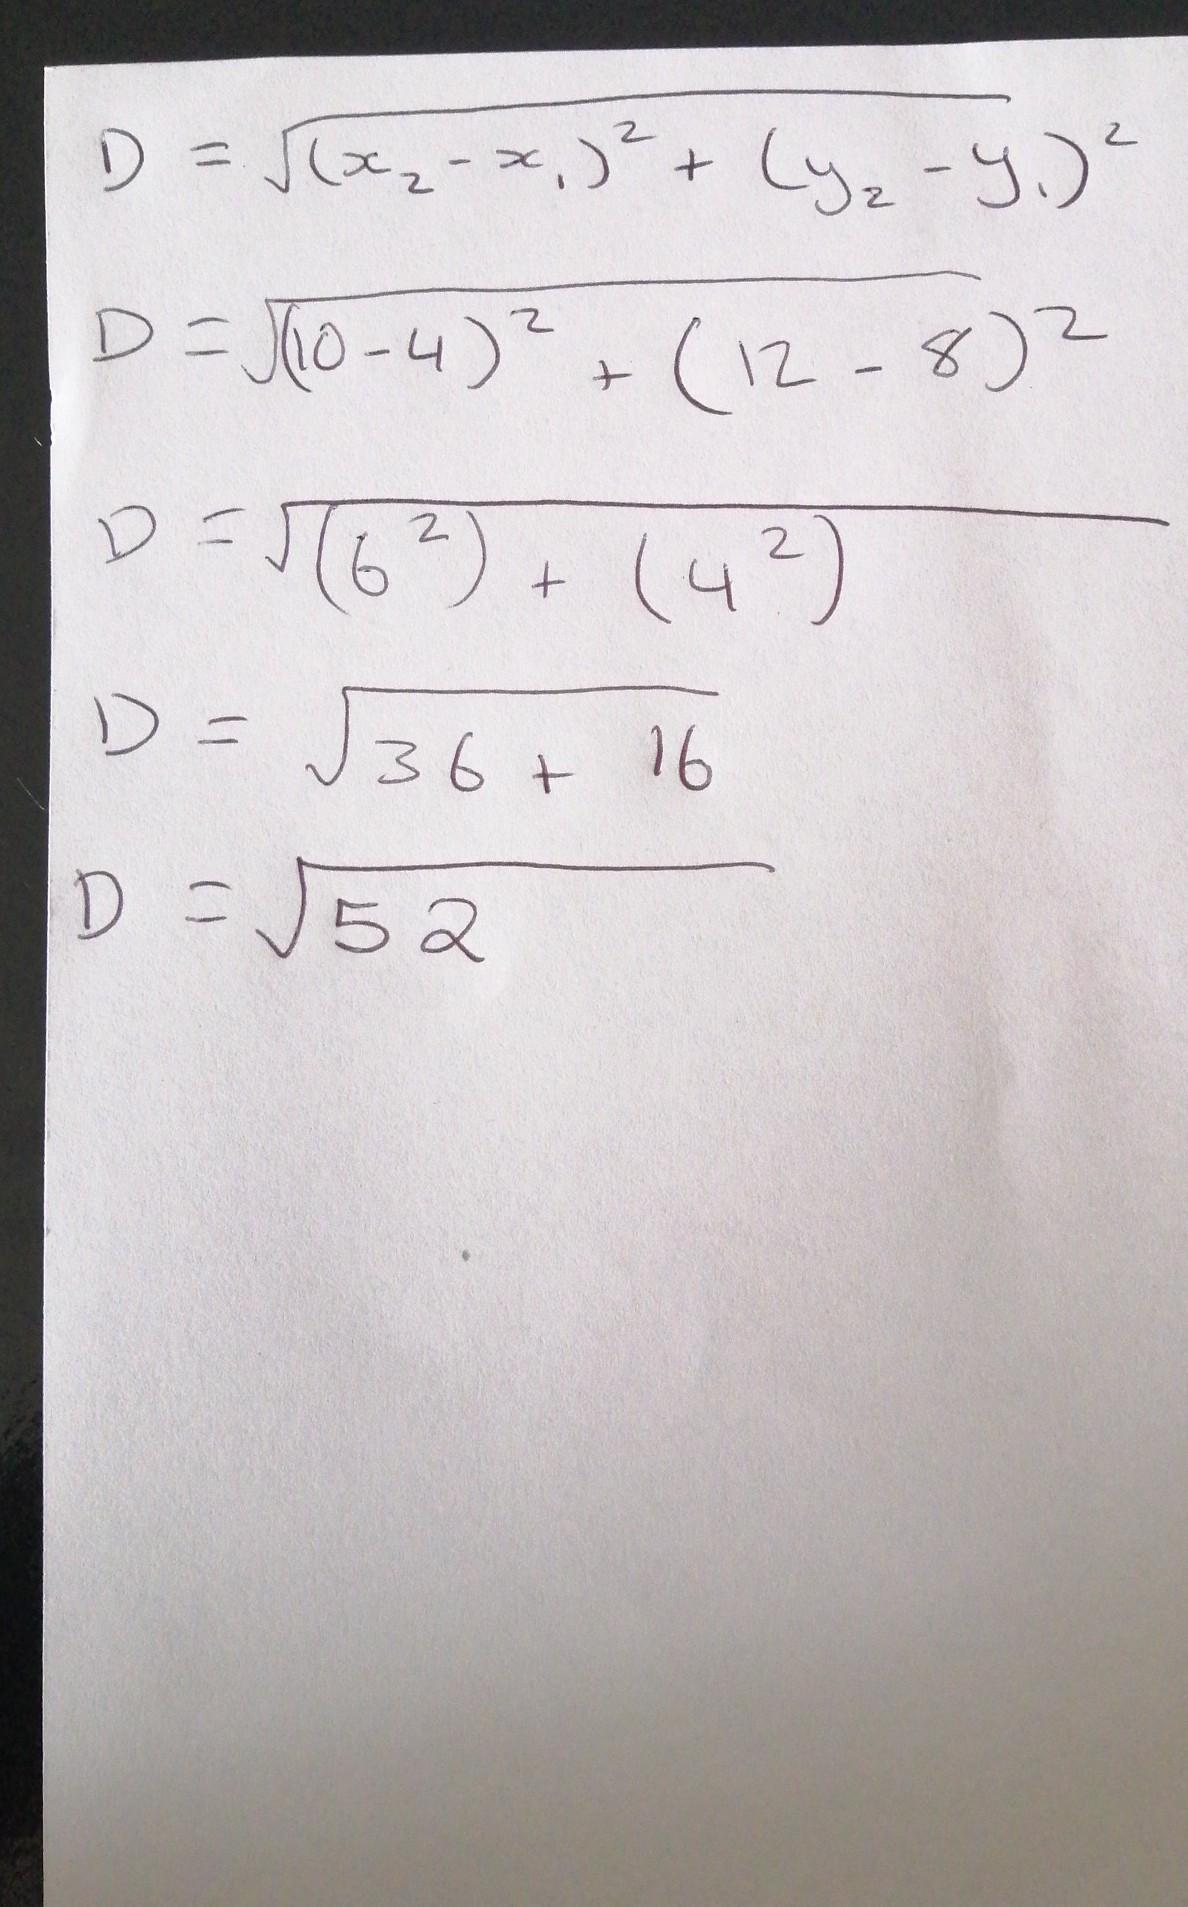 D = √(x₂ - x₁)² + (y₂ - y₁)²
D = √(10 - 4)² + (12 - 8)²
D = √(6²) + (4²)
D = √36 + 16
D = √52